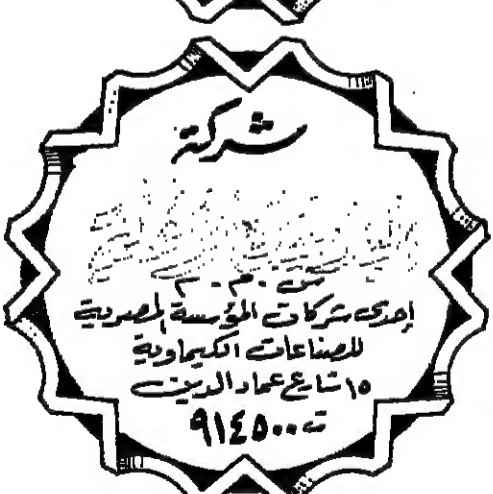 شركة
ش . م . م
إحدى شركات المؤسسة المصرية
للصناعات الكيماوية
١٥ شارع عماد الدين
ت ٩١٤٥٠٠